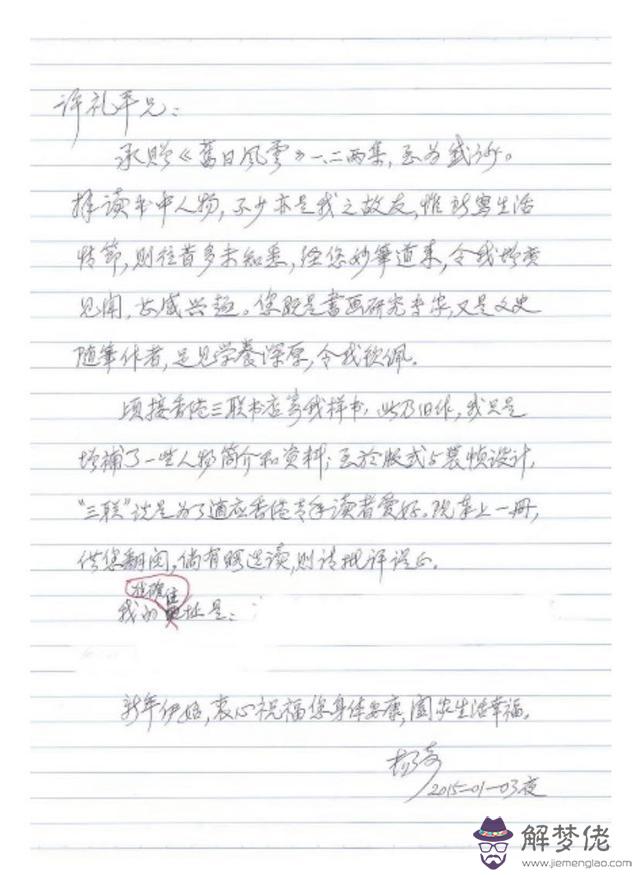 许礼平兄：
承赠《舊日風雲》一、二两集，至为感谢。
择读书中人物，不少亦是我之故友，惟所寫生活
情節，则往昔多未知悉，经您妙筆道来，令我增廣
见闻，至感兴趣。您既是書画研究专家，又是文史
随筆作者，足见学養深厚，令我钦佩。
顷接香港三联书店寄我样书，此乃旧作，我只是
增補了一些人物简介和资料；至於版式与装帧设计，
“三联”说是为了適应香港青年读者爱好。现奉上一册，
供您翻阅，倘有暇选读，则请批评误正。
准確住
我的地址是：
新年伊始，衷心祝福您身体安康，阖家生活幸福。
杨奇
2015-01-03夜
解梦佬
www.jiemenglao.com